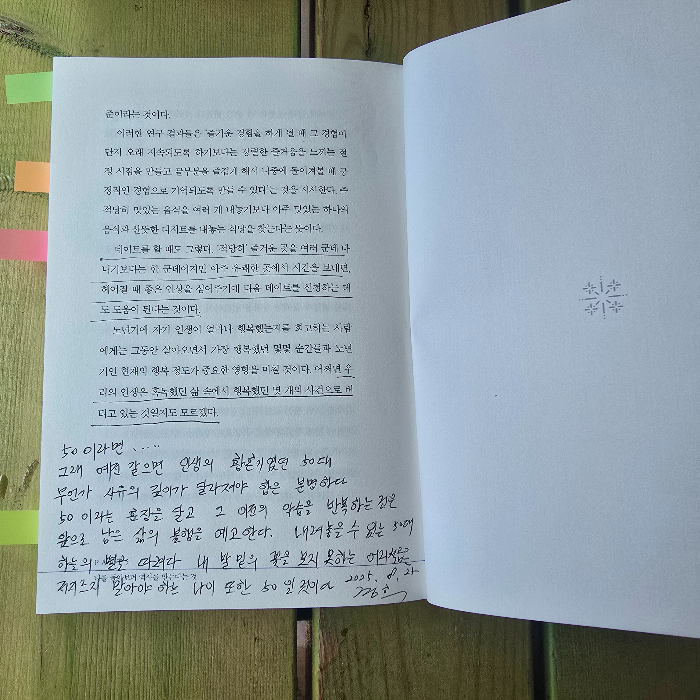 준이라는 것이다.
이러한 연구 결과들은 '즐거운 경험을 하게 될 때 그 경험이
단지 오래 지속되도록 하기보다는 강렬한 즐거움을 느끼는 절
정 시점을 만들고 끝부분을 즐겁게 해서 나중에 돌이켜볼 때 긍
정적인 경험으로 기억되도록 만들 수 있다'는 것을 시사한다. 즉
적당히 맛있는 음식을 여러 개 내놓기보다 아주 맛있는 하나의
음식과 산뜻한 디저트를 내놓는 식당을 찾는다는 뜻이다.
데이트를 할 때도 그렇다. '적당히' 즐거운 곳을 여러 군데 다
니기보다는 한 군데이지만 아주 유쾌한 곳에서 시간을 보내면,
헤어질 때 좋은 인상을 심어주기에 다음 데이트를 신청하는 데
도 도움이 된다는 것이다.
노년기에 자기 인생이 얼마나 행복했는지를 회고하는 사람
에게는 그동안 살아오면서 가장 행복했던 몇몇 순간들과 노년
기인 현재의 행복 정도가 중요한 영향을 미칠 것이다. 어쩌면 우
리의 인생은 혹독했던 삶 속에서 행복했던 몇 개의 사건으로 버
티고 있는 것일지도 모르겠다.
50 이라면 .....
그래 예전 같으면 인생의 황혼기였던 50대
무언가 사유의 깊이가 달라져야 함은 분명하다
50 이라는 훈장을 달고 그 이전의 악습을 반복하는 것은
앞으로 남은 삶의 불행을 예고한다. 내려놓을 수 있는 50대
하늘의 별을 따려다 내 발 밑의 꽃을 보지 못하는 어리석음은
저지르지 말아야 하는 나이 또한 50 일 것이다 2025. 8. 21